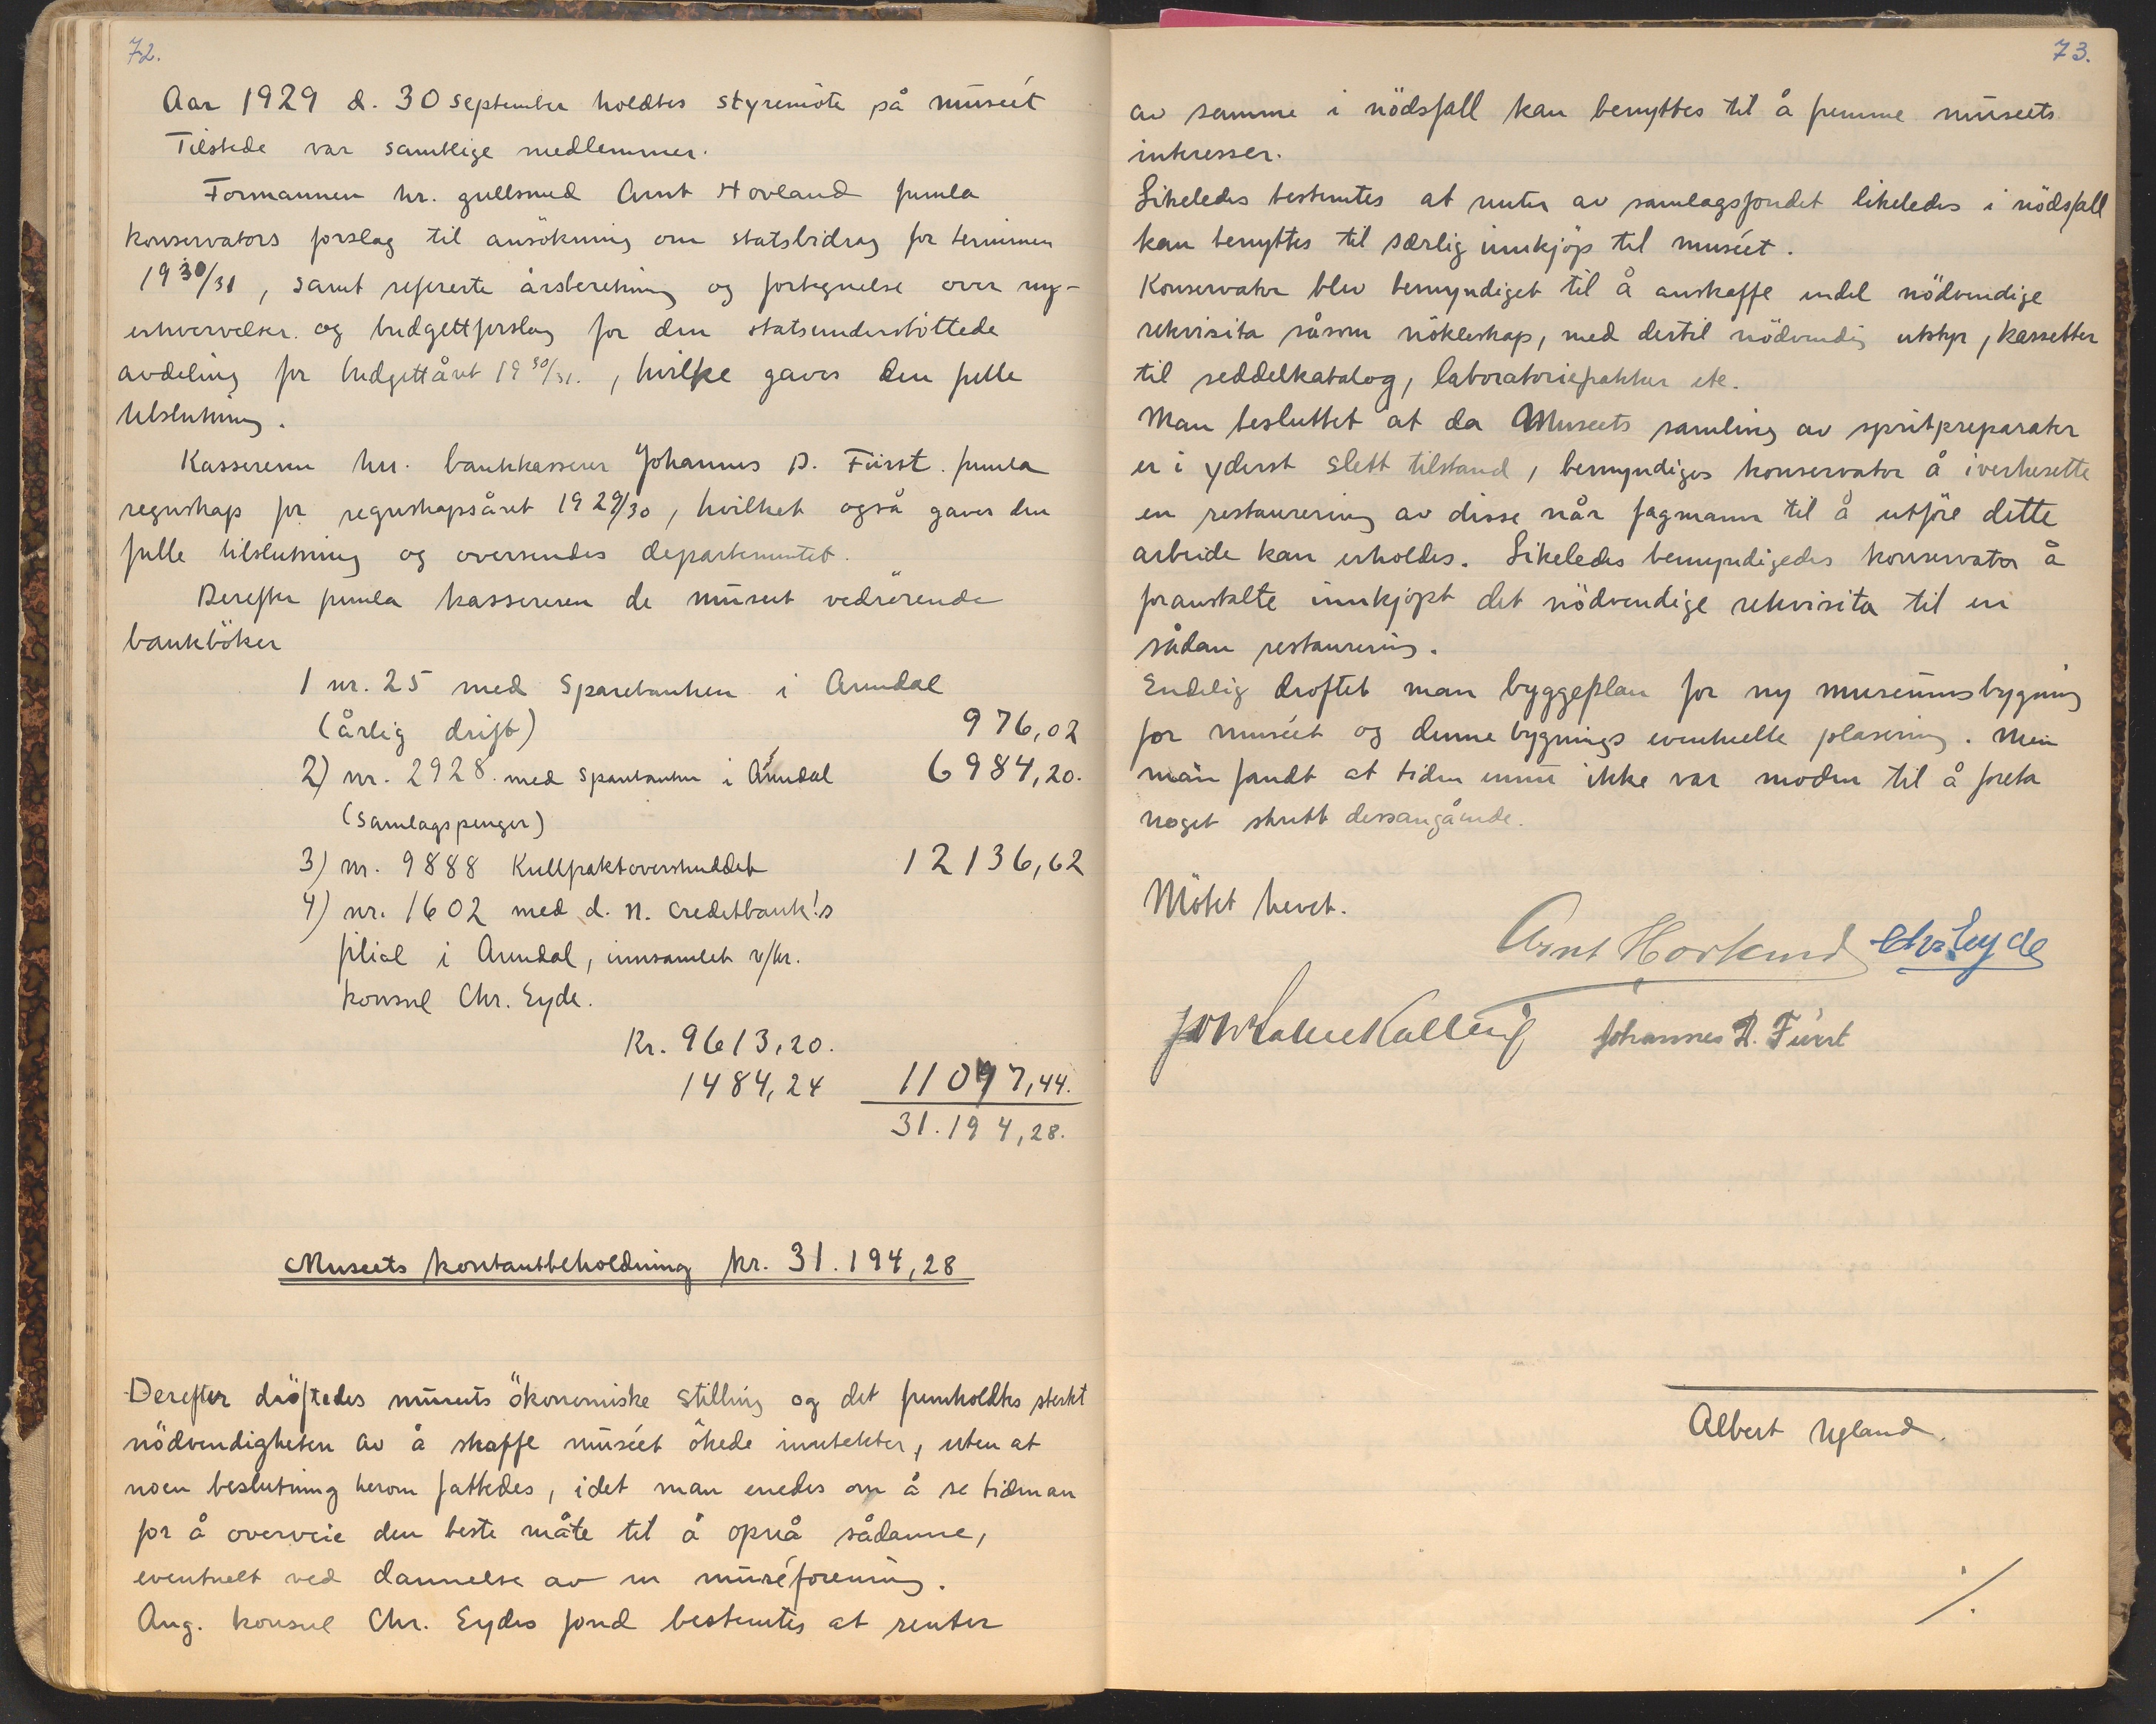 72.
Aar 1929 d. 30 september holdtes styremöte på muséet
Tilstede var samtlige medlemmer.
Formannen hr. gullsmed Arnt Hovland femla
konservators forslag til ansökning om statsbidrag for terminen
1930/31, samt refererte årsberetning og fortegnelse over ny-
erhvervelser og budgettforslag for den statsunderstöttede
avdeling for budgettåret 1930/31., hvilke gaves den fulle
tilslutning.
Kassereren hr. bankkasserer Johannes D. Fürst. fremla
regnskap for regnskapsåret 1929/30, hvilket også gaves den
fulle tilslutning og oversendes departementet.
Derefter fremla kassereren de museet vedrörende
bankböker
1 nr. 25 med Sparebanken i Arendal
(årlig drift) 976,02
2) nr. 2928. med Sparebanken i Arendal 6984,20.
(Samlagspenger)
3) nr. 9888 Kullfraktoverskuddet 12136,62
4) nr. 1602 med d. n. Creditbank's
filial i Arendal, innsamlet v/hr.
konsul Chr. Eyde.
Kr. 9613,20.
1484,24 11097,44.
31.194,28.
Museets kontantbeholdning kr. 31.194,28
Derefter dröftedes museets ökonomiske stilling og det fremholdtes sterkt
nödvendigheten av å skaffe muséet ökede inntekter, uten at
noen beslutning herom fattedes, idet man enedes om å se tiden an
for å overveie den beste måte til å opnå sådanne,
eventuelt ved dannelse av en muséforening.
Ang. konsul Chr. Eydes fond bestemtes at renter
73.
av samme i nödsfall kan benyttes til å fremme museets
interesser.
Likeledes bestemtes at renter av samlagsfondet likeledes i nödsfall
kan benyttes til særlig innkjöp til muséet.
Konservator blev bemyndiget til å anskaffe endel nödvendige
rekvisita såsom nökleskap, med dertil nödvendig utstyr, kassetter
til seddelkatalog, laboratoriefrakker etc.
Man besluttet at da Museets samling av spritpreparater
er i yderst slett tilstand, bemyndiges konservator å iverksette
en restaurering av disse når fagmann til å utföre dette
arbeide kan erholdes. Likeledes bemyndigedes konservator å
foranstalte innkjöpt det nödvendige rekvisita til en
sådan restaurering.
Endelig droftet man byggeplan for ny museumsbygning
for muséet og denne bygnings eventuelle plasering. Men
man fandt at tiden ennu ikke var moden til å foreta
noget skritt dessangående.
Mötet hevet.
Arnt Hovland Chr. Eyde
Johannes D. Fürst
Albert Ugland.
./.